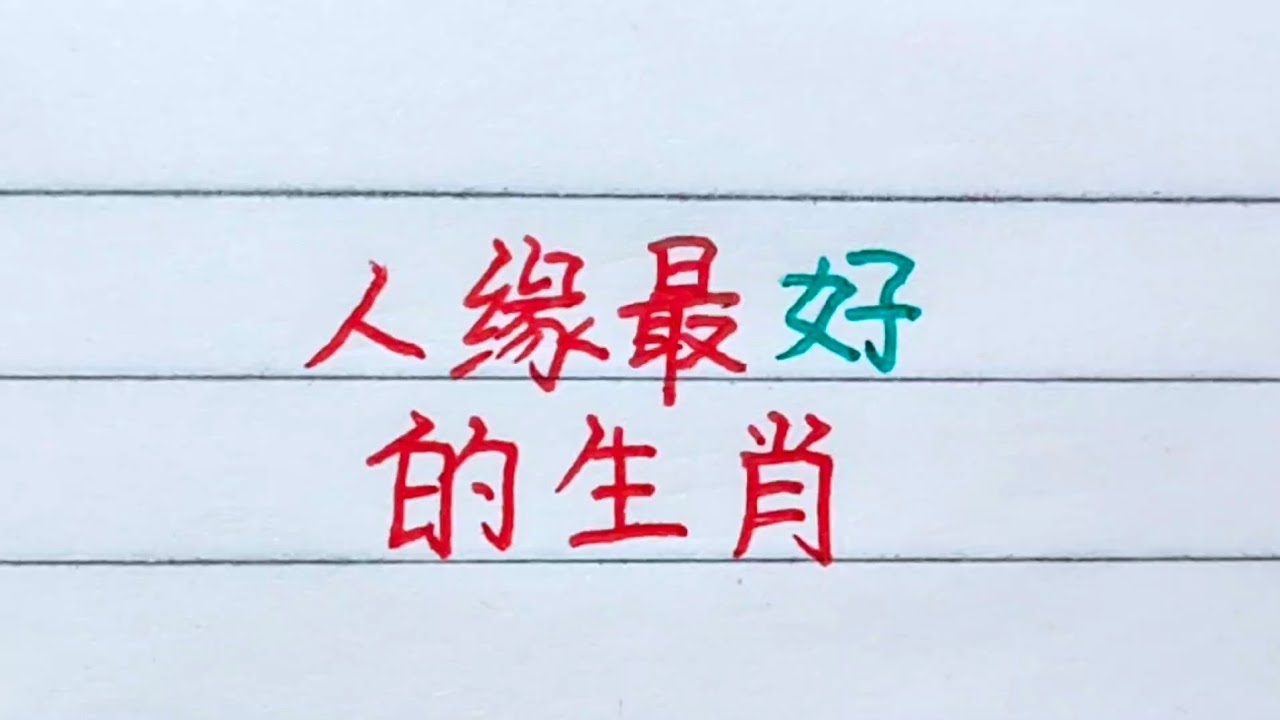 人缘最好
的生肖